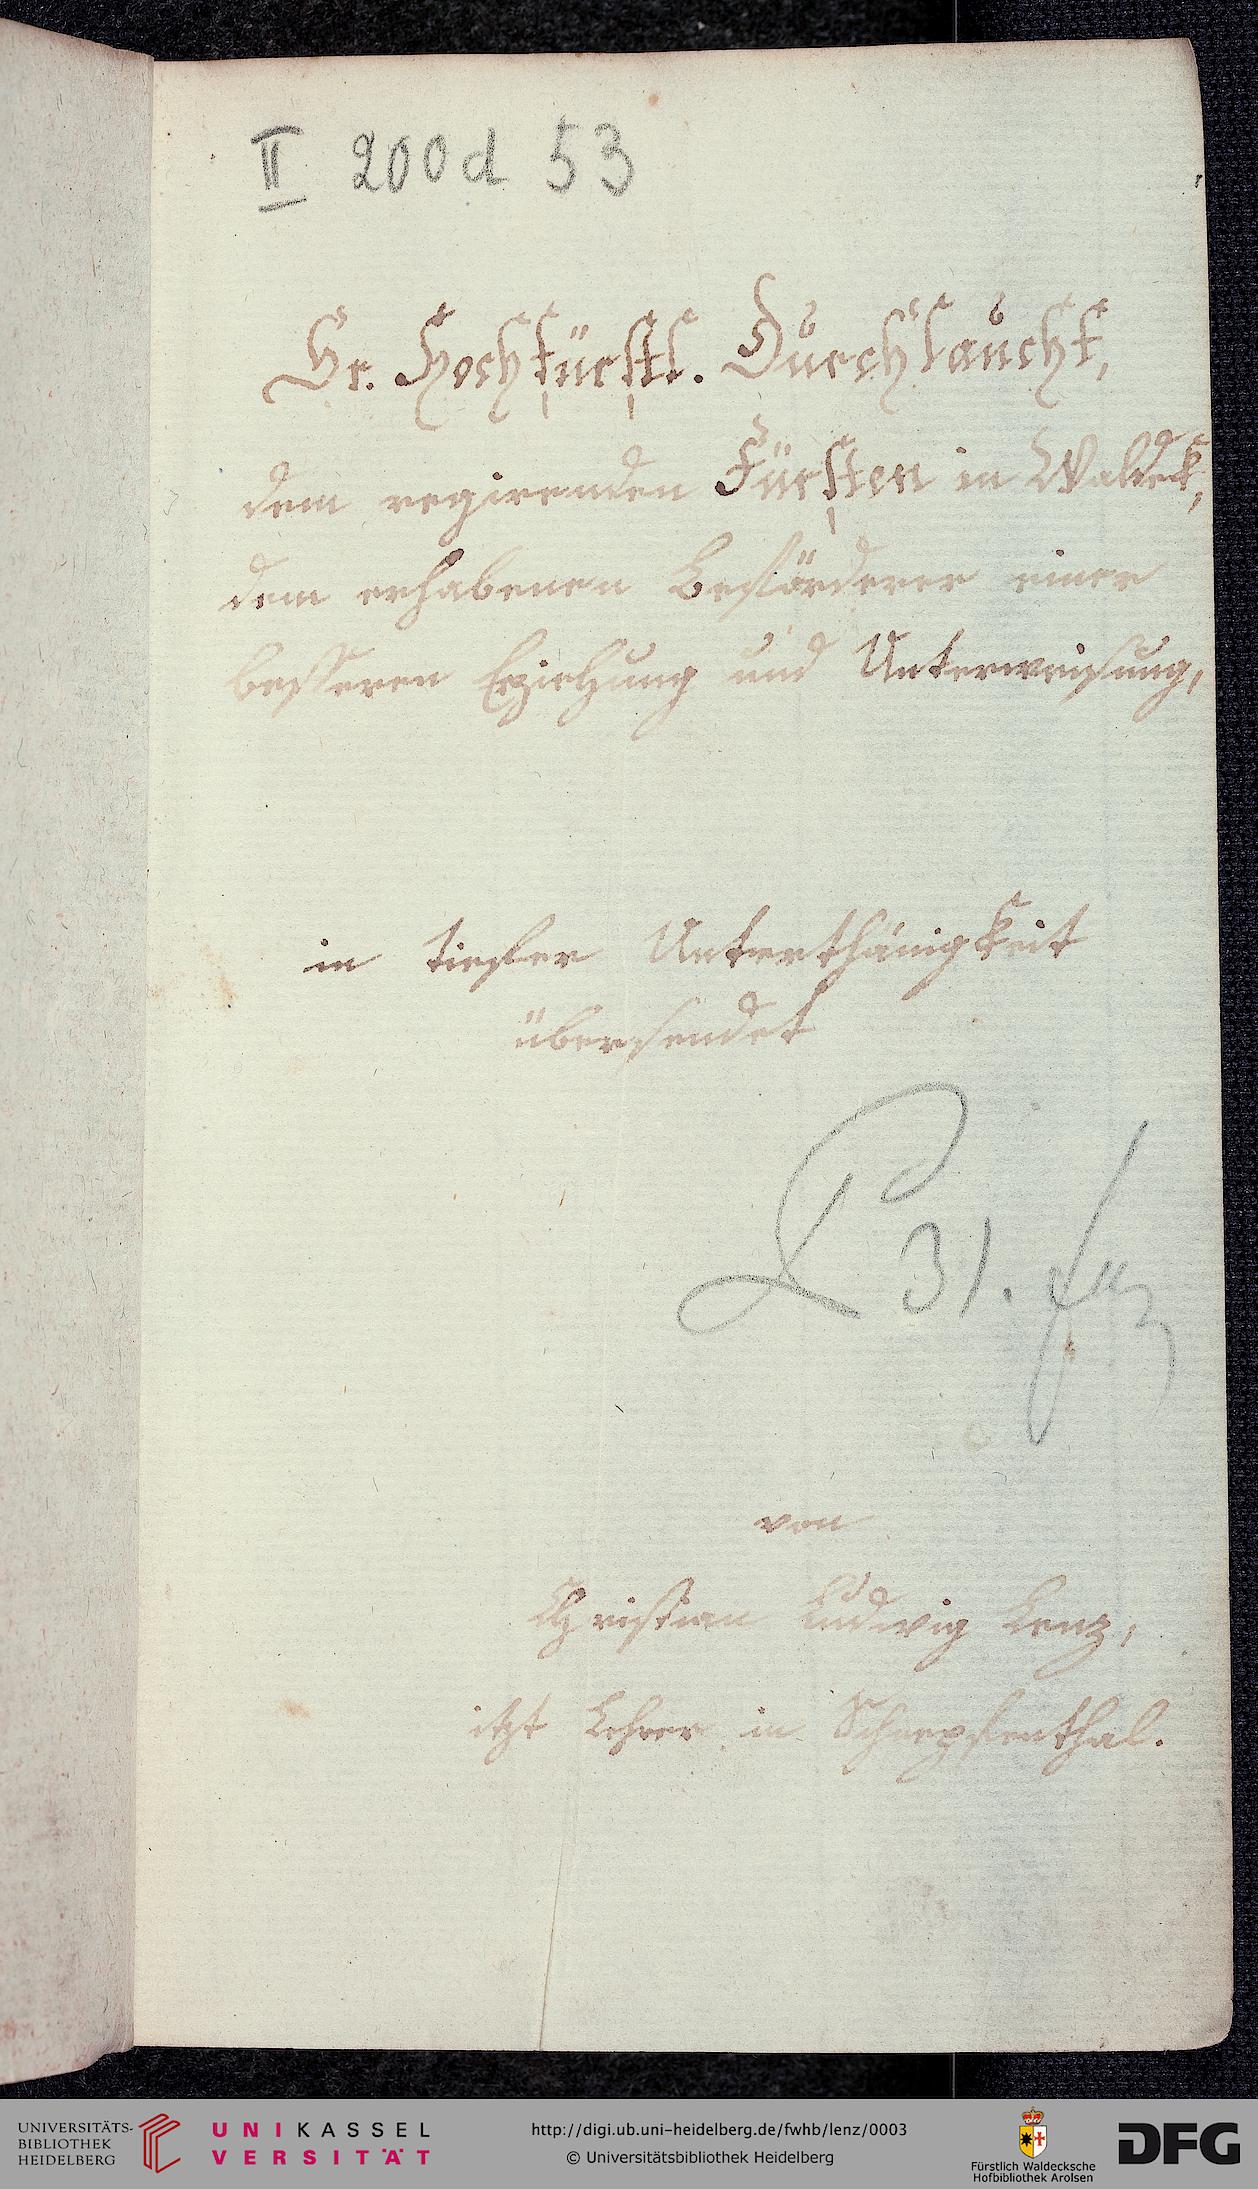 II 200 d 53
Sr. Hochfürstl. Durchlaucht,
dem regirenden Fürsten in Waldeck,
dem erhabenen Beförderer einer
besseren Erziehung und Unterweisung,
in tiefer Unterthänigkeit
übersendet
31.
von
Christian Ludwig Lenz,
itzt Lehrer in Schnepfenthal.
UNIVERSITÄTS-
BIBLIOTHEK
HEIDELBERG
UNIKASSEL
VERSITÄT
http://digi.ub.uni-heidelberg.de/fwhb/lenz/0003
© Universitätsbibliothek Heidelberg
Fürstlich Waldecksche
Hofbibliothek Arolsen
DFG